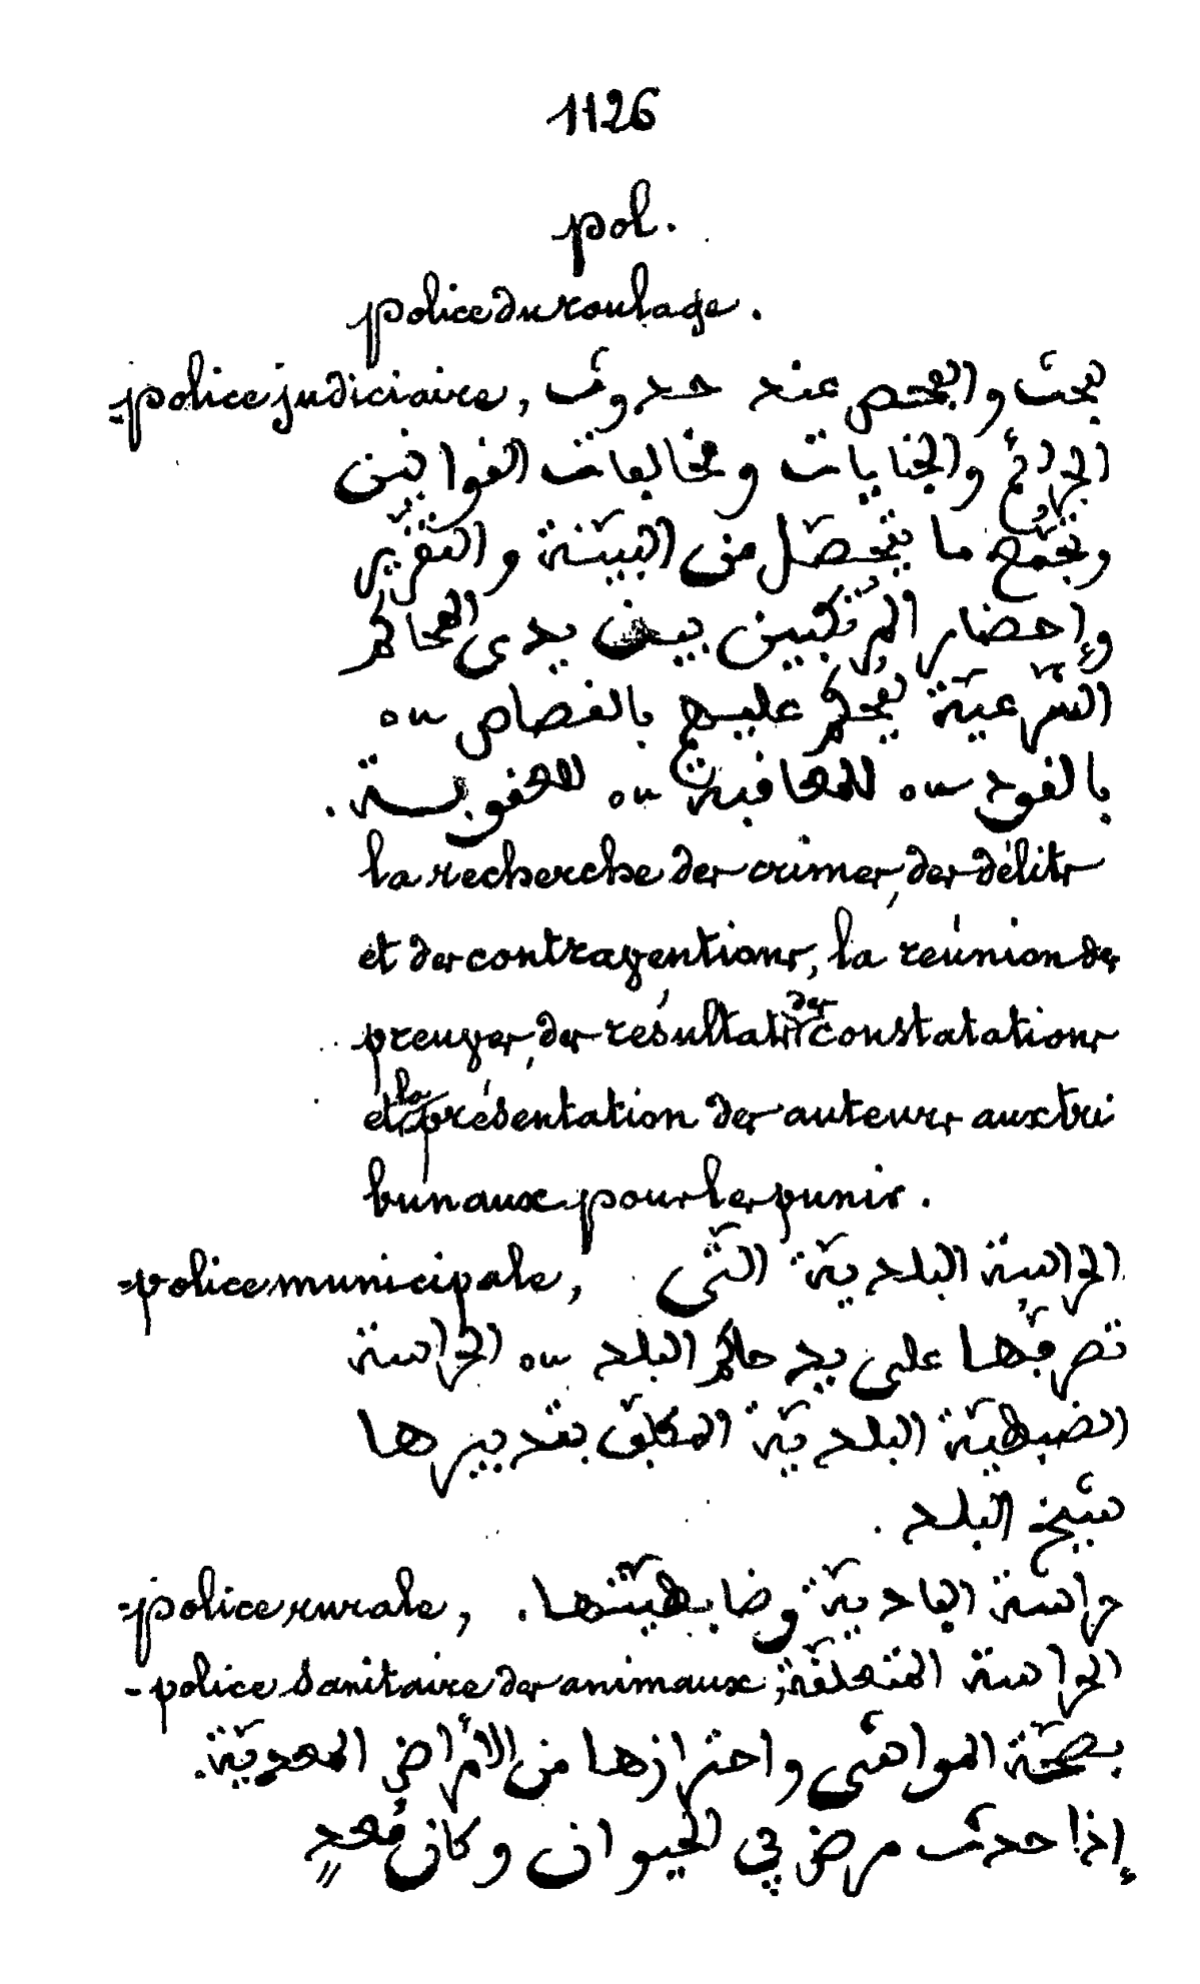 1126
pol.
police du roulage.
=police judiciaire, بحث والفحص عند حدوث
الجرائم والجنايات ومخالفات القوانين
وتجمّع ما يتحصّل من البيّنة والتقرير
وإحضار المرتكبين بين يدى المحاكم
الشرعيّة ليحكم عليهم بالقصاص ou
بالقود ou للمعاقبة ou للعقوبة.
la recherche des crimes, des délits
et des contraventions, la réunion des
preuves, des résultats des constatations
et la présentation des auteurs aux tri
bunaux pour les punir.
=police municipale, الحراسة البلديّة التّى
تصرفها على يد حاكم البلد ou الحراسة
الضبطيّة البلديّة المكلّف بتدبيرها
شيخ البلد.
=police rurale, حراسة الباديّة وضابطيّتها.
-police sanitaire des animaux, الحراسة المتعلّقة
بصحّة المواشى واحترازها من الأمراض المعديّة.
إذا حدث مرض فى الحيوان وكان مُعدٍ